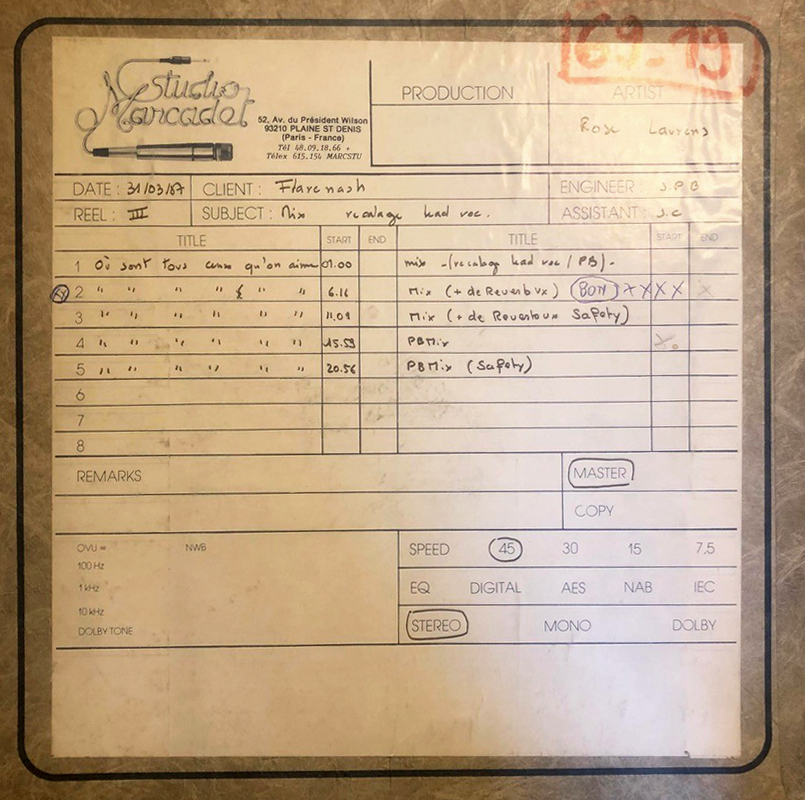 69-19
Studio Marcadet
52, Av. du Président Wilson
93210 PLAINE ST DENIS
(Paris - France)
Tél 48.09.18.66 +
Télex 615.154 MARCSTU
PRODUCTION ARTIST
Rose Laurens
DATE : 31/03/87 CLIENT : Flarenash ENGINEER : J.P.B
REEL : III SUBJECT : Mix recalage lead voc. ASSISTANT : J.C
TITLE START END TITLE START END
1 Où sont tous ceux qu'on aime 01.00 mix - (recalage lead voc / PB) -
2 " " " " " " 6.16 Mix (+ de Reverb vx) (BON) X X X X X
3 " " " " " " 11.09 Mix (+ de Reverb vx Safety)
4 " " " " " " 15.53 PBMix X.
5 " " " " " " 20.56 PBMix (Safety)
6
7
8
REMARKS MASTER
COPY
OVU = NWB SPEED 45 30 15 7,5
100 Hz
1 kHz EQ DIGITAL AES NAB IEC
10 kHz
DOLBY TONE STEREO MONO DOLBY